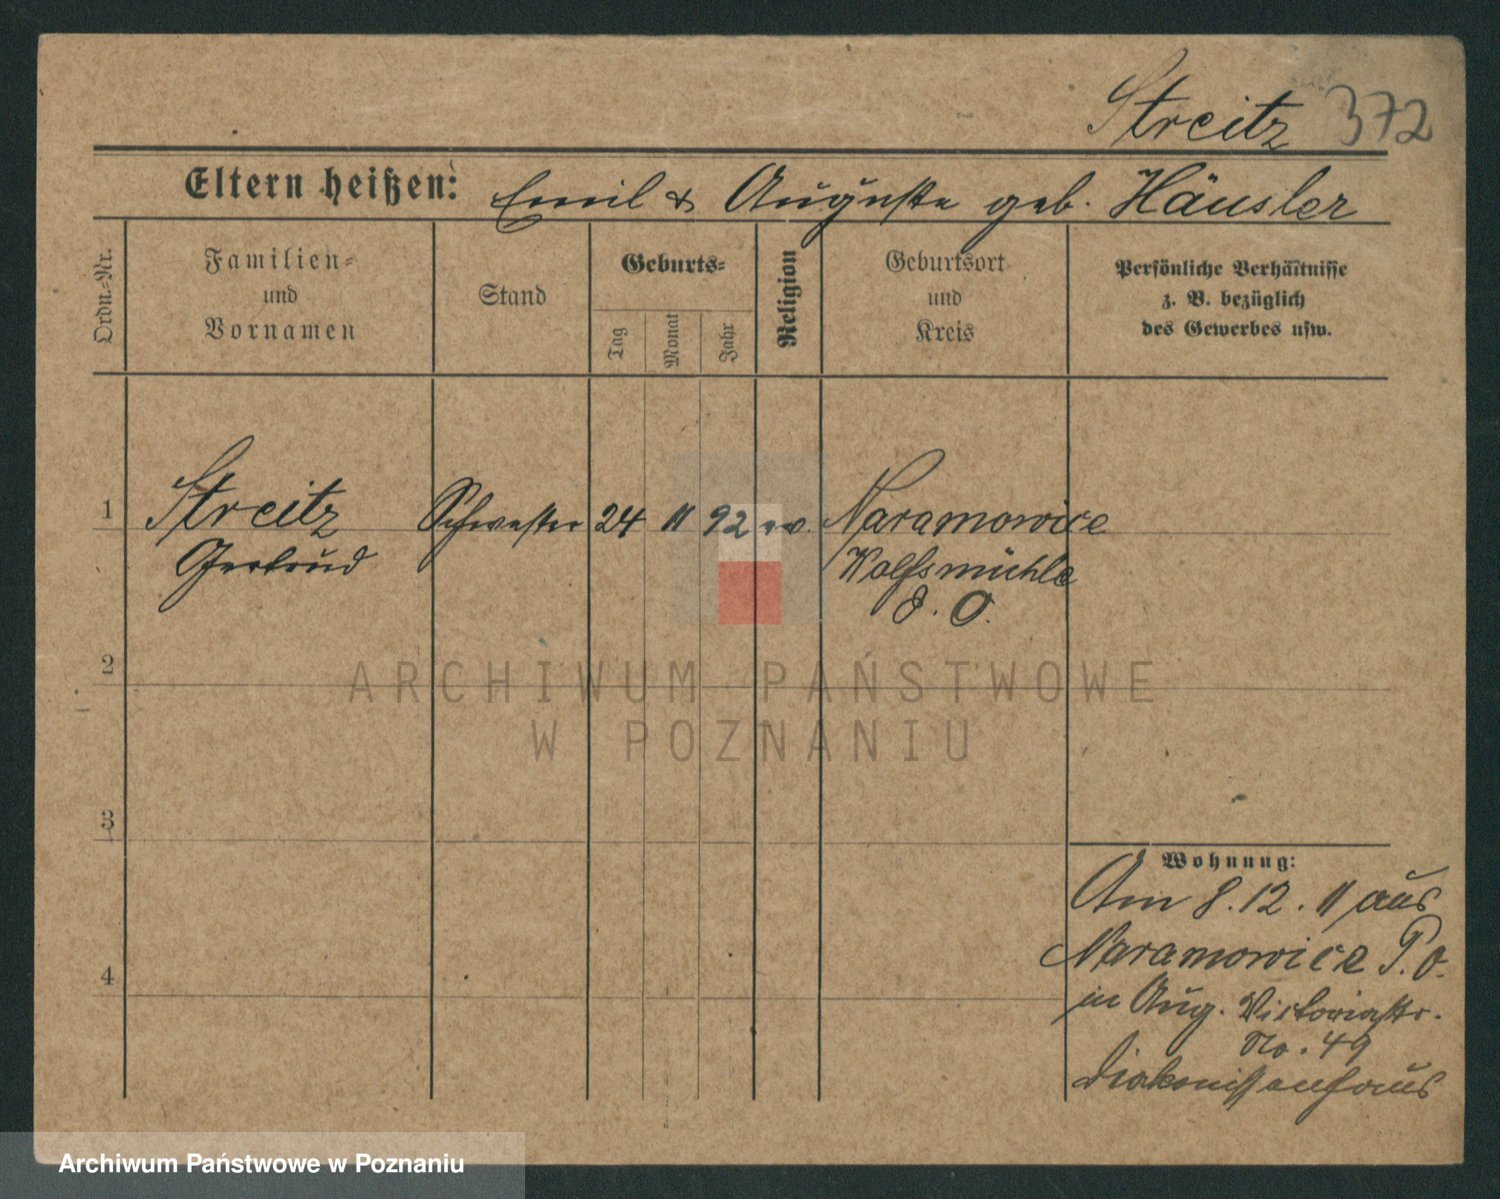 Streitz 372
Eltern heißen: Emil & Auguste geb. Häusler
Ordn.-Nr.
Familien-
und
Vornamen
Stand
Geburts-
Tag
Monat
Jahr
Religion
Geburtsort
und
Kreis
Persönliche Verhältnisse
z. B. bezüglich
des Gewerbes usw.
1 Streitz Schwester 24 11 92 ev. Naramowice
Gertrud Wolfsmühle
P. O.
2
ARCHIWUM PAŃSTWOWE
W POZNANIU
3
Wohnung:
Am 8. 12. 11 aus
Naramowice P. O.
4
in Aug. Victoriastr.
No. 49
Diakonissenhaus
Archiwum Państwowe w Poznaniu